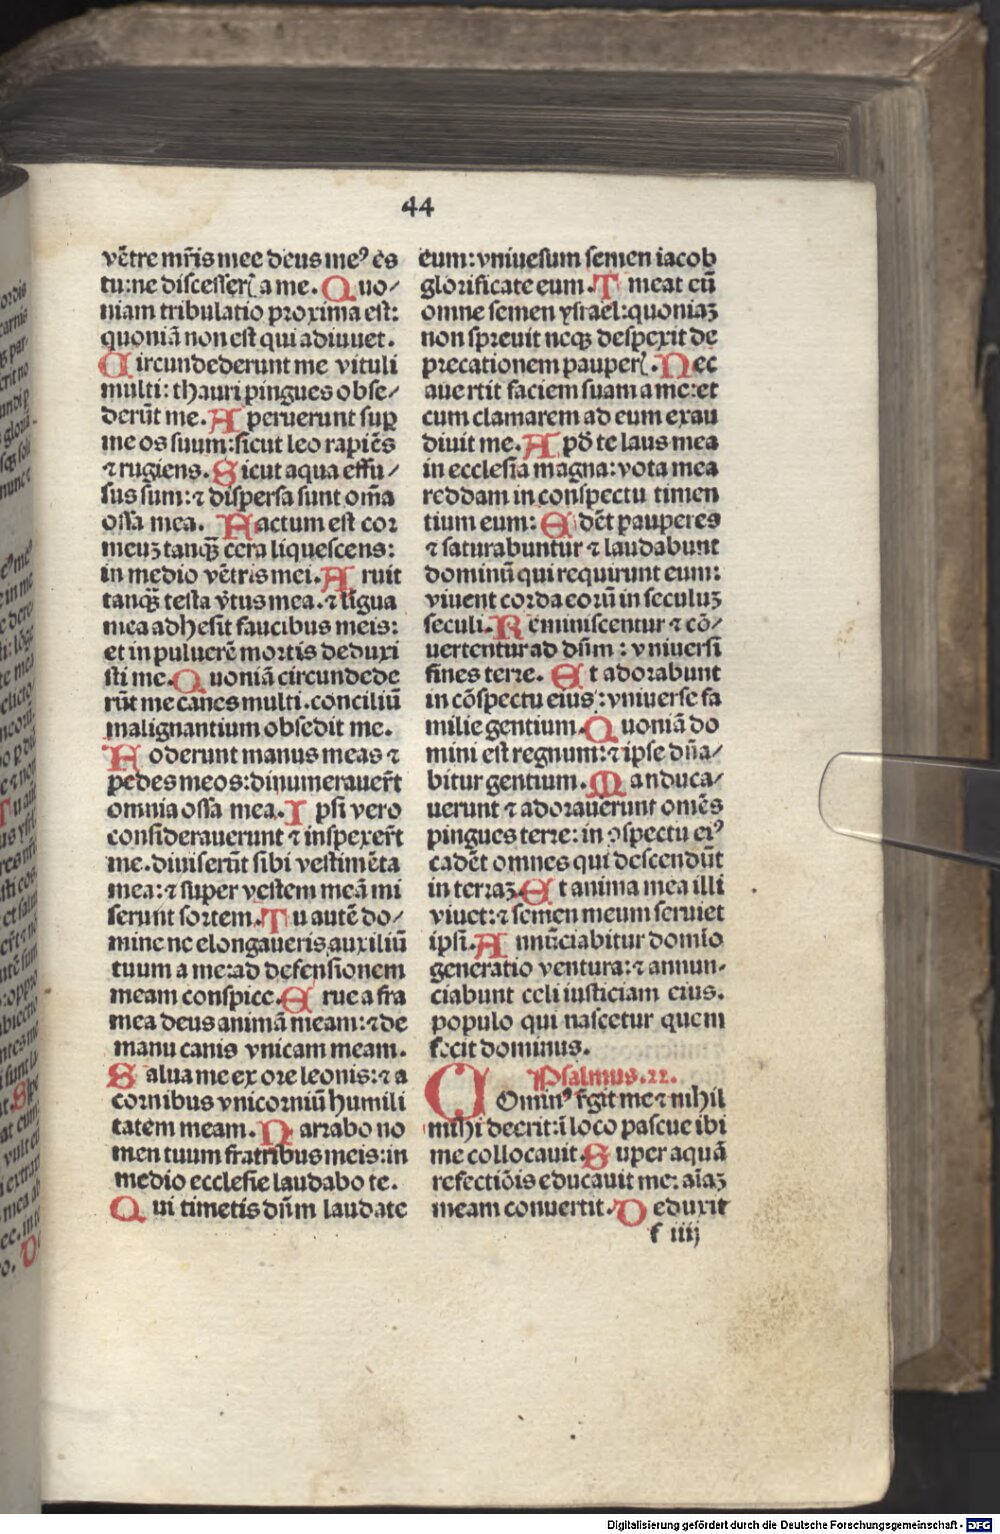 44
vētre mr̄is mee deus meꝰ es
tu:ne discesser̄ a me. Quo⸗
niam tribulatio proxima est:
quoniā non est qui adiuuet.
Circundederunt me vituli
multi: thauri pingues obse⸗
derūt me. Aperuerunt suꝑ
me os suum:sicut leo rapiēs
⁊ rugiens. Sicut aqua effu⸗
sus sum:⁊ dispersa sunt om̄a
ossa mea. Factum est cor
meuꝫ tanqꝫ cera liquescens:
in medio vētris mei. Aruit
tanqꝫ testa v̄tus mea.⁊ līgua
mea adhesit faucibus meis:
et in puluerē mortis deduxi
sti me. Quoniā circundede
rūt me canes multi.conciliū
malignantium obsedit me.
Foderunt manus meas ⁊
pedes meos:dinumerauer̄t
omnia ossa mea. Ipsi vero
considerauerunt ⁊ inspexer̄t
me.diuiserūt sibi vestimēta
mea:⁊ super vestem meā mi
serunt sortem. Tu autē do⸗
mine ne elongaueris auxiliū
tuum a me:ad defensionem
meam conspice. Erue a fra
mea deus animā meam:⁊ de
manu canis vnicam meam.
Salua me ex ore leonis:⁊ a
cornibus vnicorniū humili
tatem meam. Narrabo no
men tuum fratribus meis:in
medio ecclesie laudabo te.
Qui timetis dn̄m laudate
eum:vniuesum semen iacob
glorificate eum. Timeat eū
omne semen ysrael:quoniaꝫ
non spreuit neqꝫ despexit de
precationem pauper̄. Nec
auertit faciem suam a me:et
cum clamarem ad eum exau
diuit me. Apd̄ te laus mea
in ecclesia magna:vota mea
reddam in conspectu timen
tium eum: Edēt pauperes
⁊ saturabuntur ⁊ laudabunt
dominū qui requirunt eum:
viuent corda eorū in seculuꝫ
seculi. Reminiscentur ⁊ cō⸗
uertentur ad dn̄m: vniuersi
fines terre. Et adorabunt
in cōspectu eius:vniuerse fa
milie gentium. Quoniā do
mini est regnum:⁊ ipse dn̄a⸗
bitur gentium. Manduca⸗
uerunt ⁊ adorauerunt omēs
pingues terre: in ꝯspectu eiꝰ
cadēt omnes qui descendūt
in terraꝫ. Et anima mea illi
viuet:⁊ semen meum seruiet
ipsi. Annūciabitur domīo
generatio ventura:⁊ annun⸗
ciabunt celi iusticiam eius.
populo qui nascetur quem
fecit dominus.
Psalmus.22.
DOminꝰ r̄git me ⁊ nihil
mihi deerit:ī loco pascue ibi
me collocauit. Super aquā
refectiōis educauit me: aīaꝫ
meam conuertit. Deduxit
f iiij
Digitalisierung gefördert durch die Deutsche Forschungsgemeinschaft - DFG